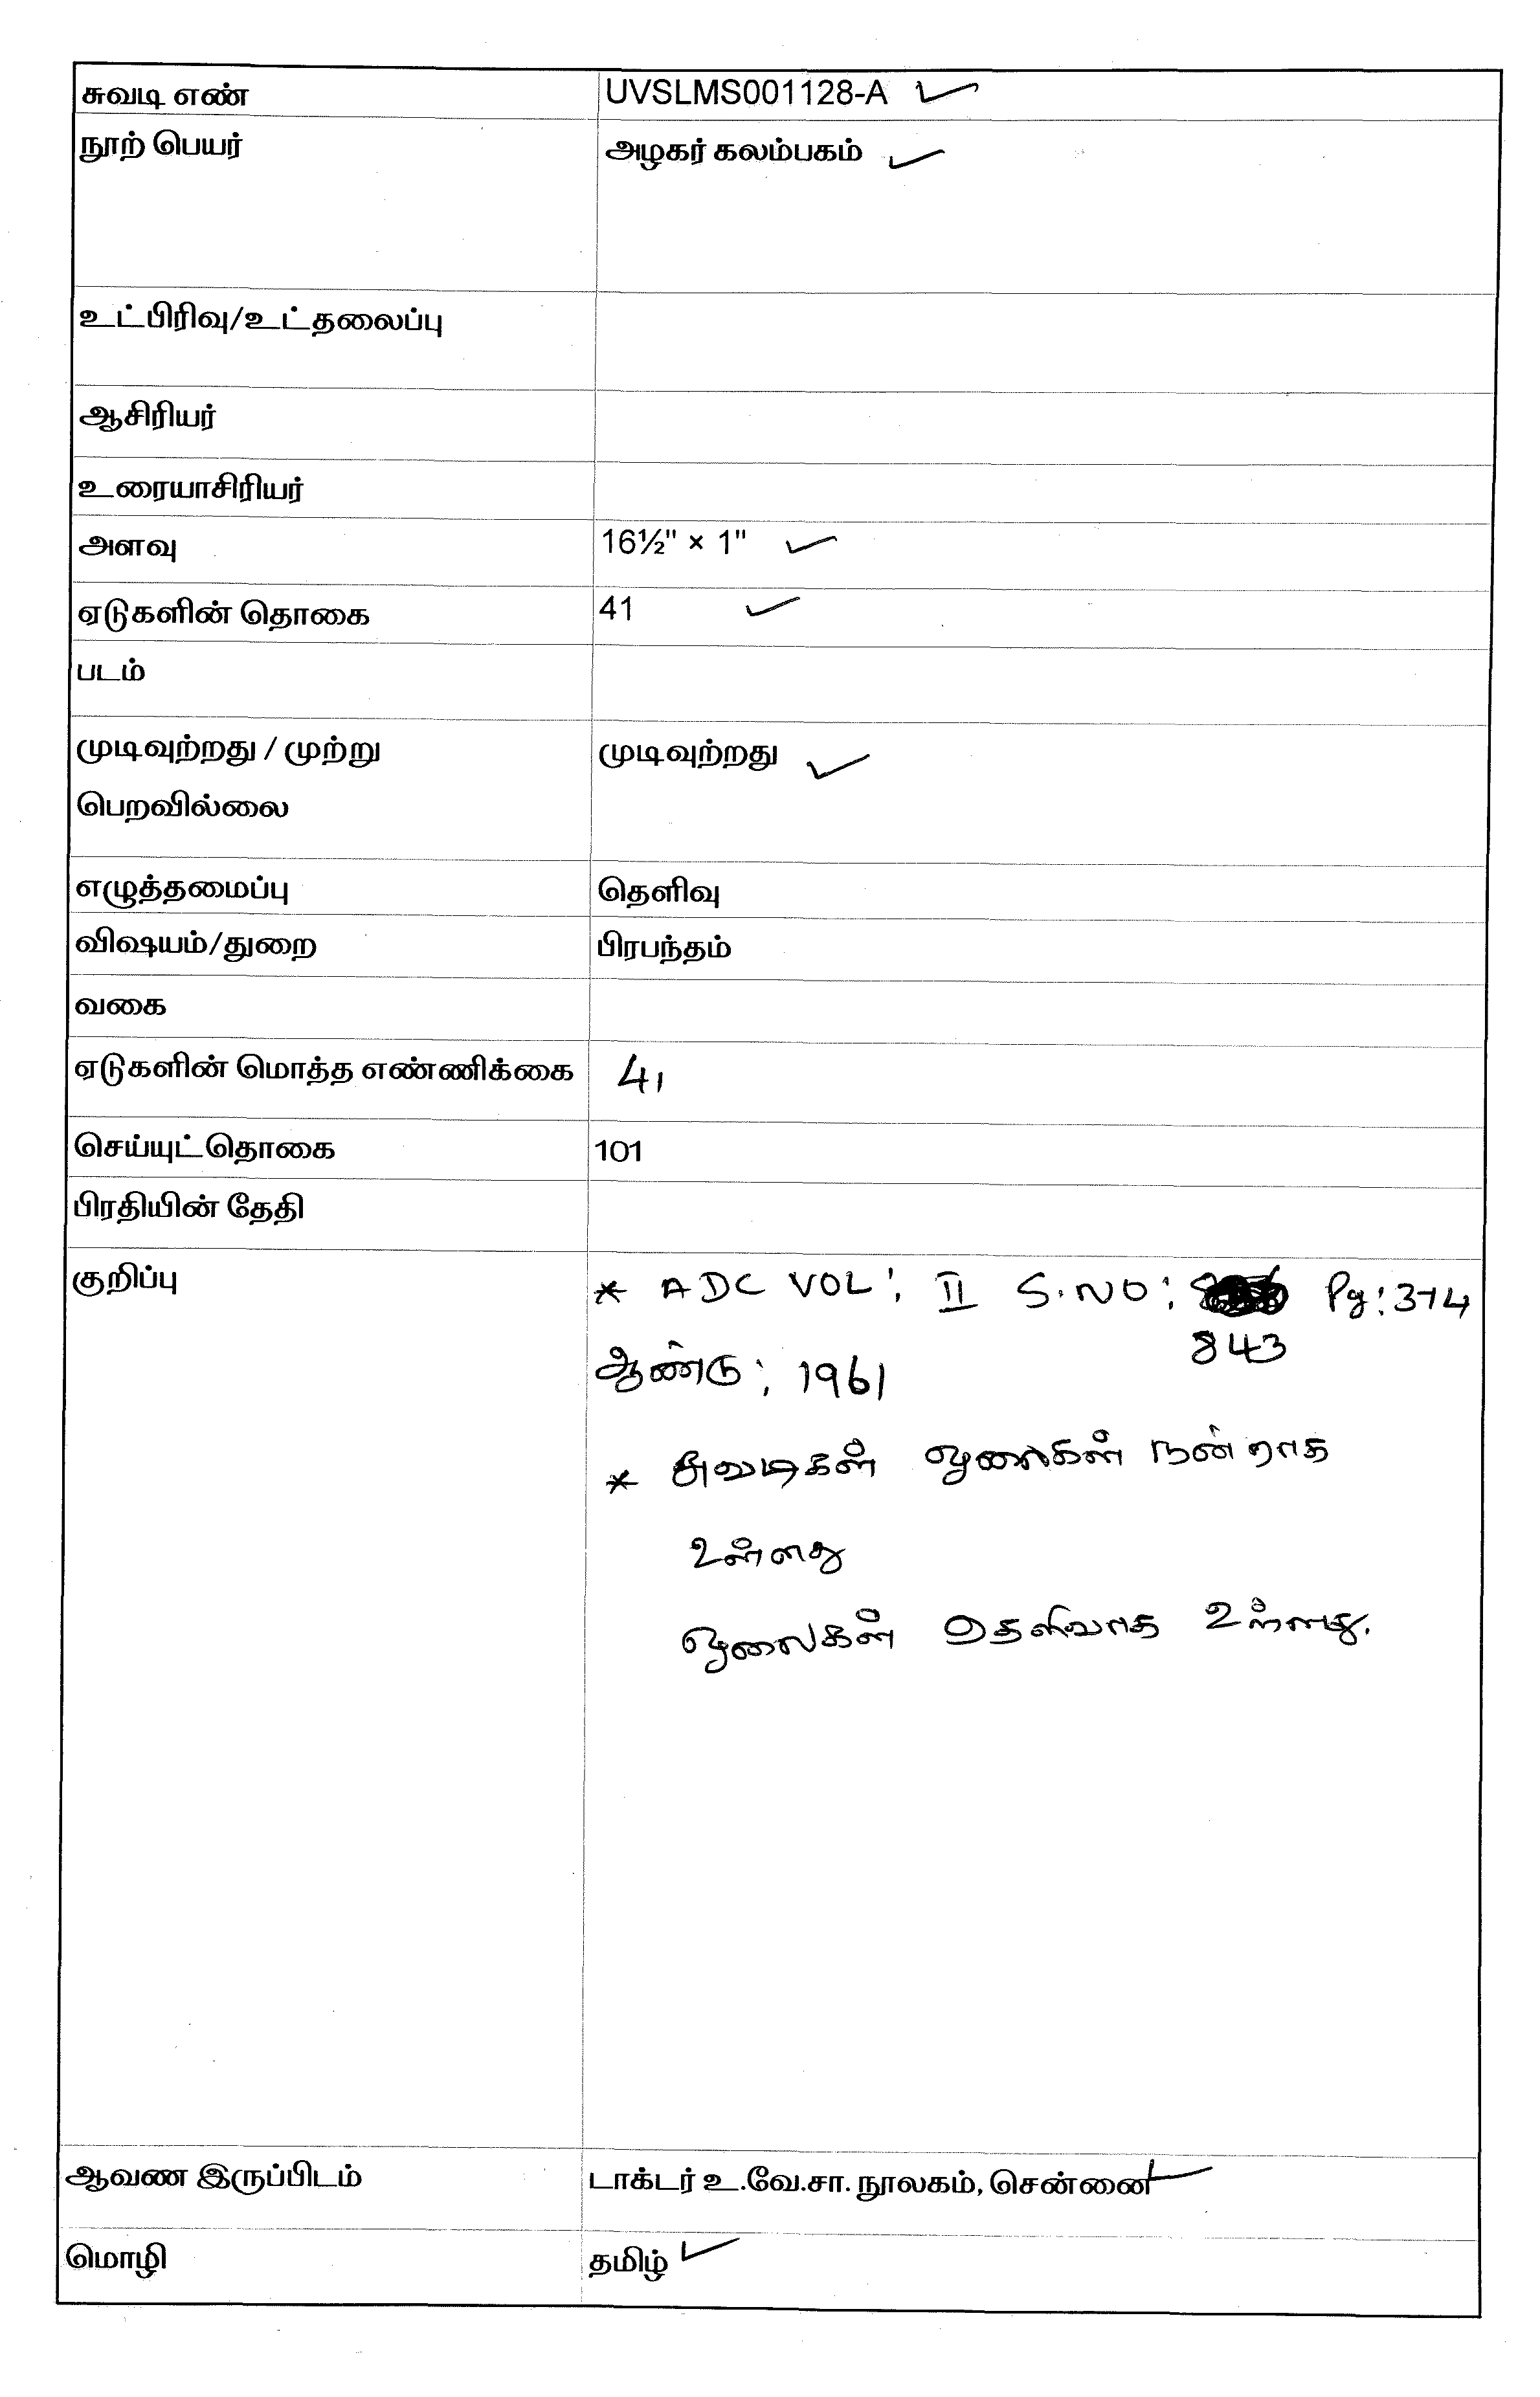 சுவடி எண் UVSLMS001128-A
நூற் பெயர் அழகர் கலம்பகம்
உட்பிரிவு/உட்தலைப்பு
ஆசிரியர்
உரையாசிரியர்
அளவு 16½" × 1"
ஏடுகளின் தொகை 41
படம்
முடிவுற்றது / முற்று முடிவுற்றது
பெறவில்லை
எழுத்தமைப்பு தெளிவு
விஷயம்/துறை பிரபந்தம்
வகை
ஏடுகளின் மொத்த எண்ணிக்கை 41
செய்யுட்தொகை 101
பிரதியின் தேதி
குறிப்பு * ADC VOL: II S.NO: Pg: 374
843
ஆண்டு: 1961
* சுவடிகள் ஓலைகள் நன்றாக
உள்ளது
ஓலைகள் தெளிவாக உள்ளது.
ஆவண இருப்பிடம் டாக்டர் உ.வே.சா. நூலகம், சென்னை
மொழி தமிழ்